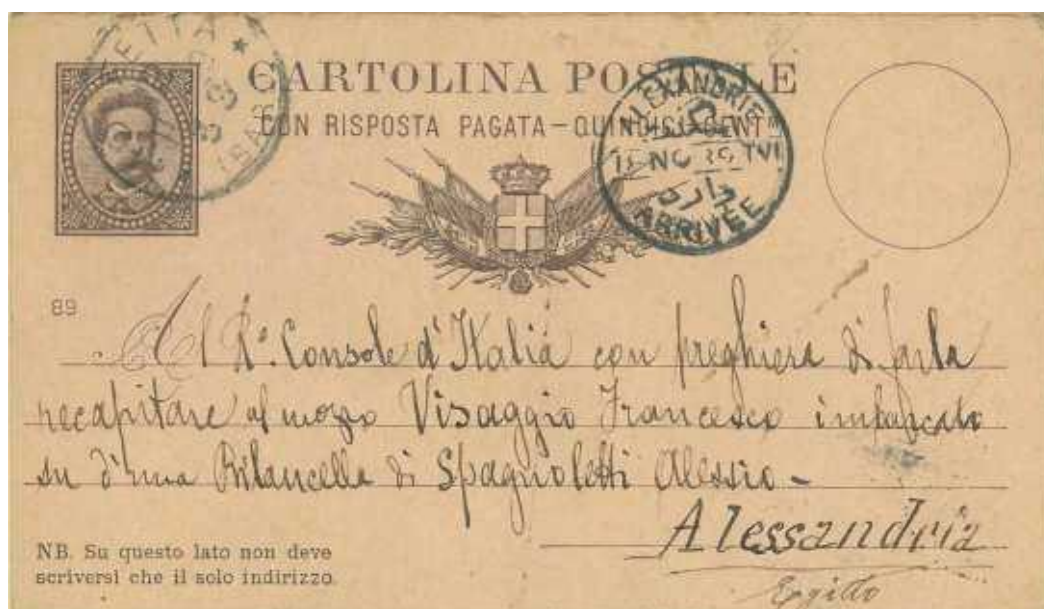 CARTOLINA POSTALE
CON RISPOSTA PAGATA — QUINDICI CENT.
ALEXANDRIE
NO 89 TVI
ARRIVÉE
89
Al R.º Console d'Italia con preghiera di farla
recapitare al mozzo Visaggio Francesco imbarcato
su d'una Bilancella di Spagnoletti Alessio -
Alessandria
Egitto
NB. Su questo lato non deve
scriversi che il solo indirizzo.